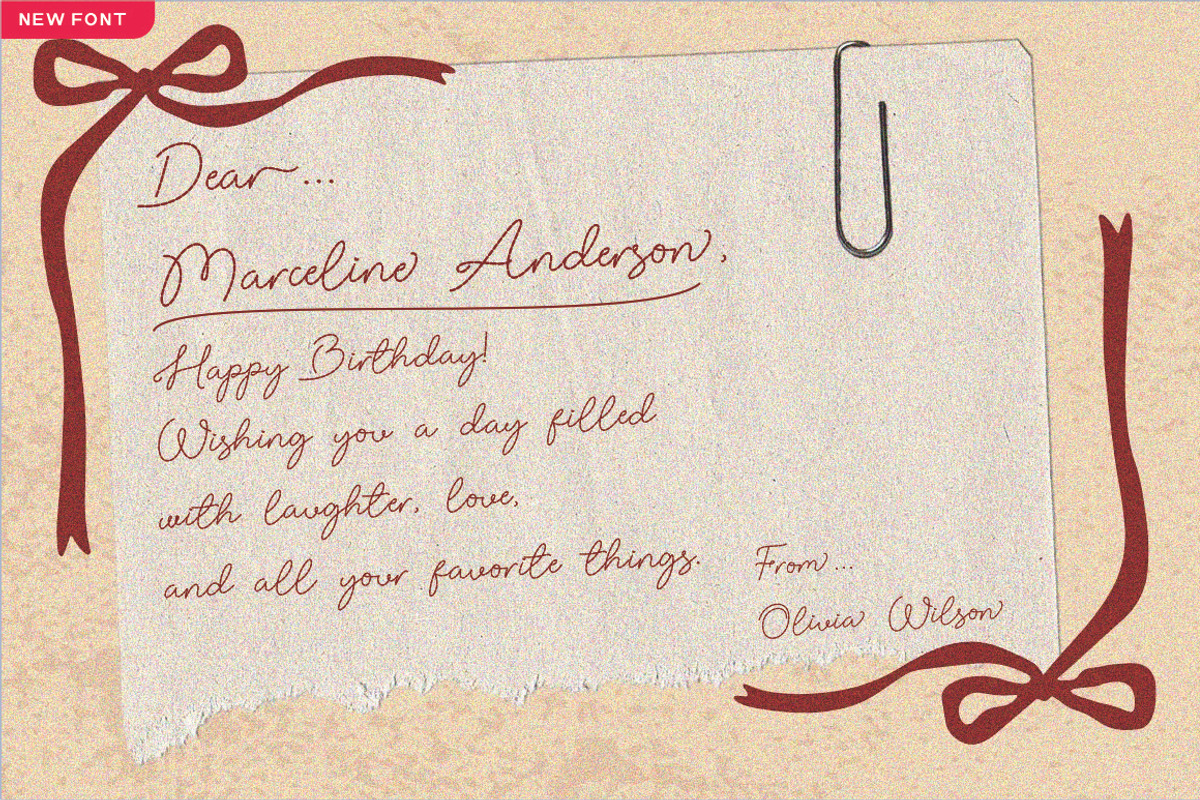 NEW FONT
Dear...
Marceline Anderson,
Happy Birthday!
Wishing you a day filled
with laughter, love,
and all your favorite things.
From...
Olivia Wilson